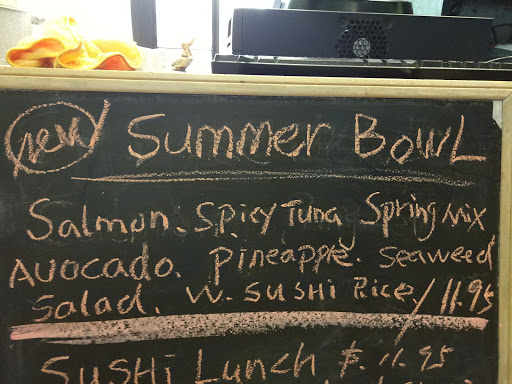 new Summer Bowl
Salmon. Spicy Tuna Spring Mix
Avocado. Pineapple. Seaweed
Salad. W. Sushi Rice / 11.95
Sushi Lunch $. 11.95